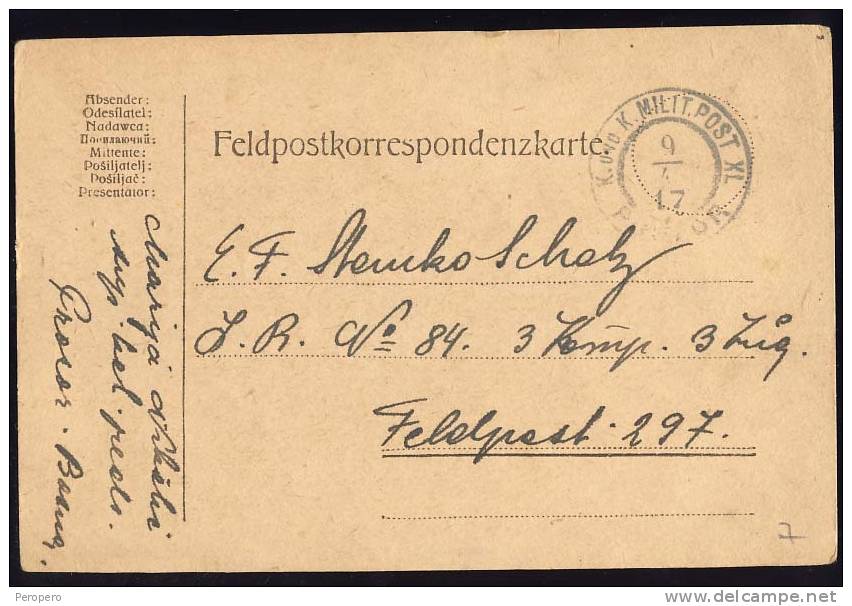 Absender:
Odesílatel:
Nadawca:
Mittente:
Pošiljatelj:
Pošiljač:
Presentator:
Feldpostkorrespondenzkarte.
K. und K. MILIT. POST XL
9
17
E. F. Stemko Scholz
I. R. No 84. 3 Komp. 3 Zug.
Feldpost 297.
Marija
Prozor. Bosna.
7
Peropero
delcampe.net